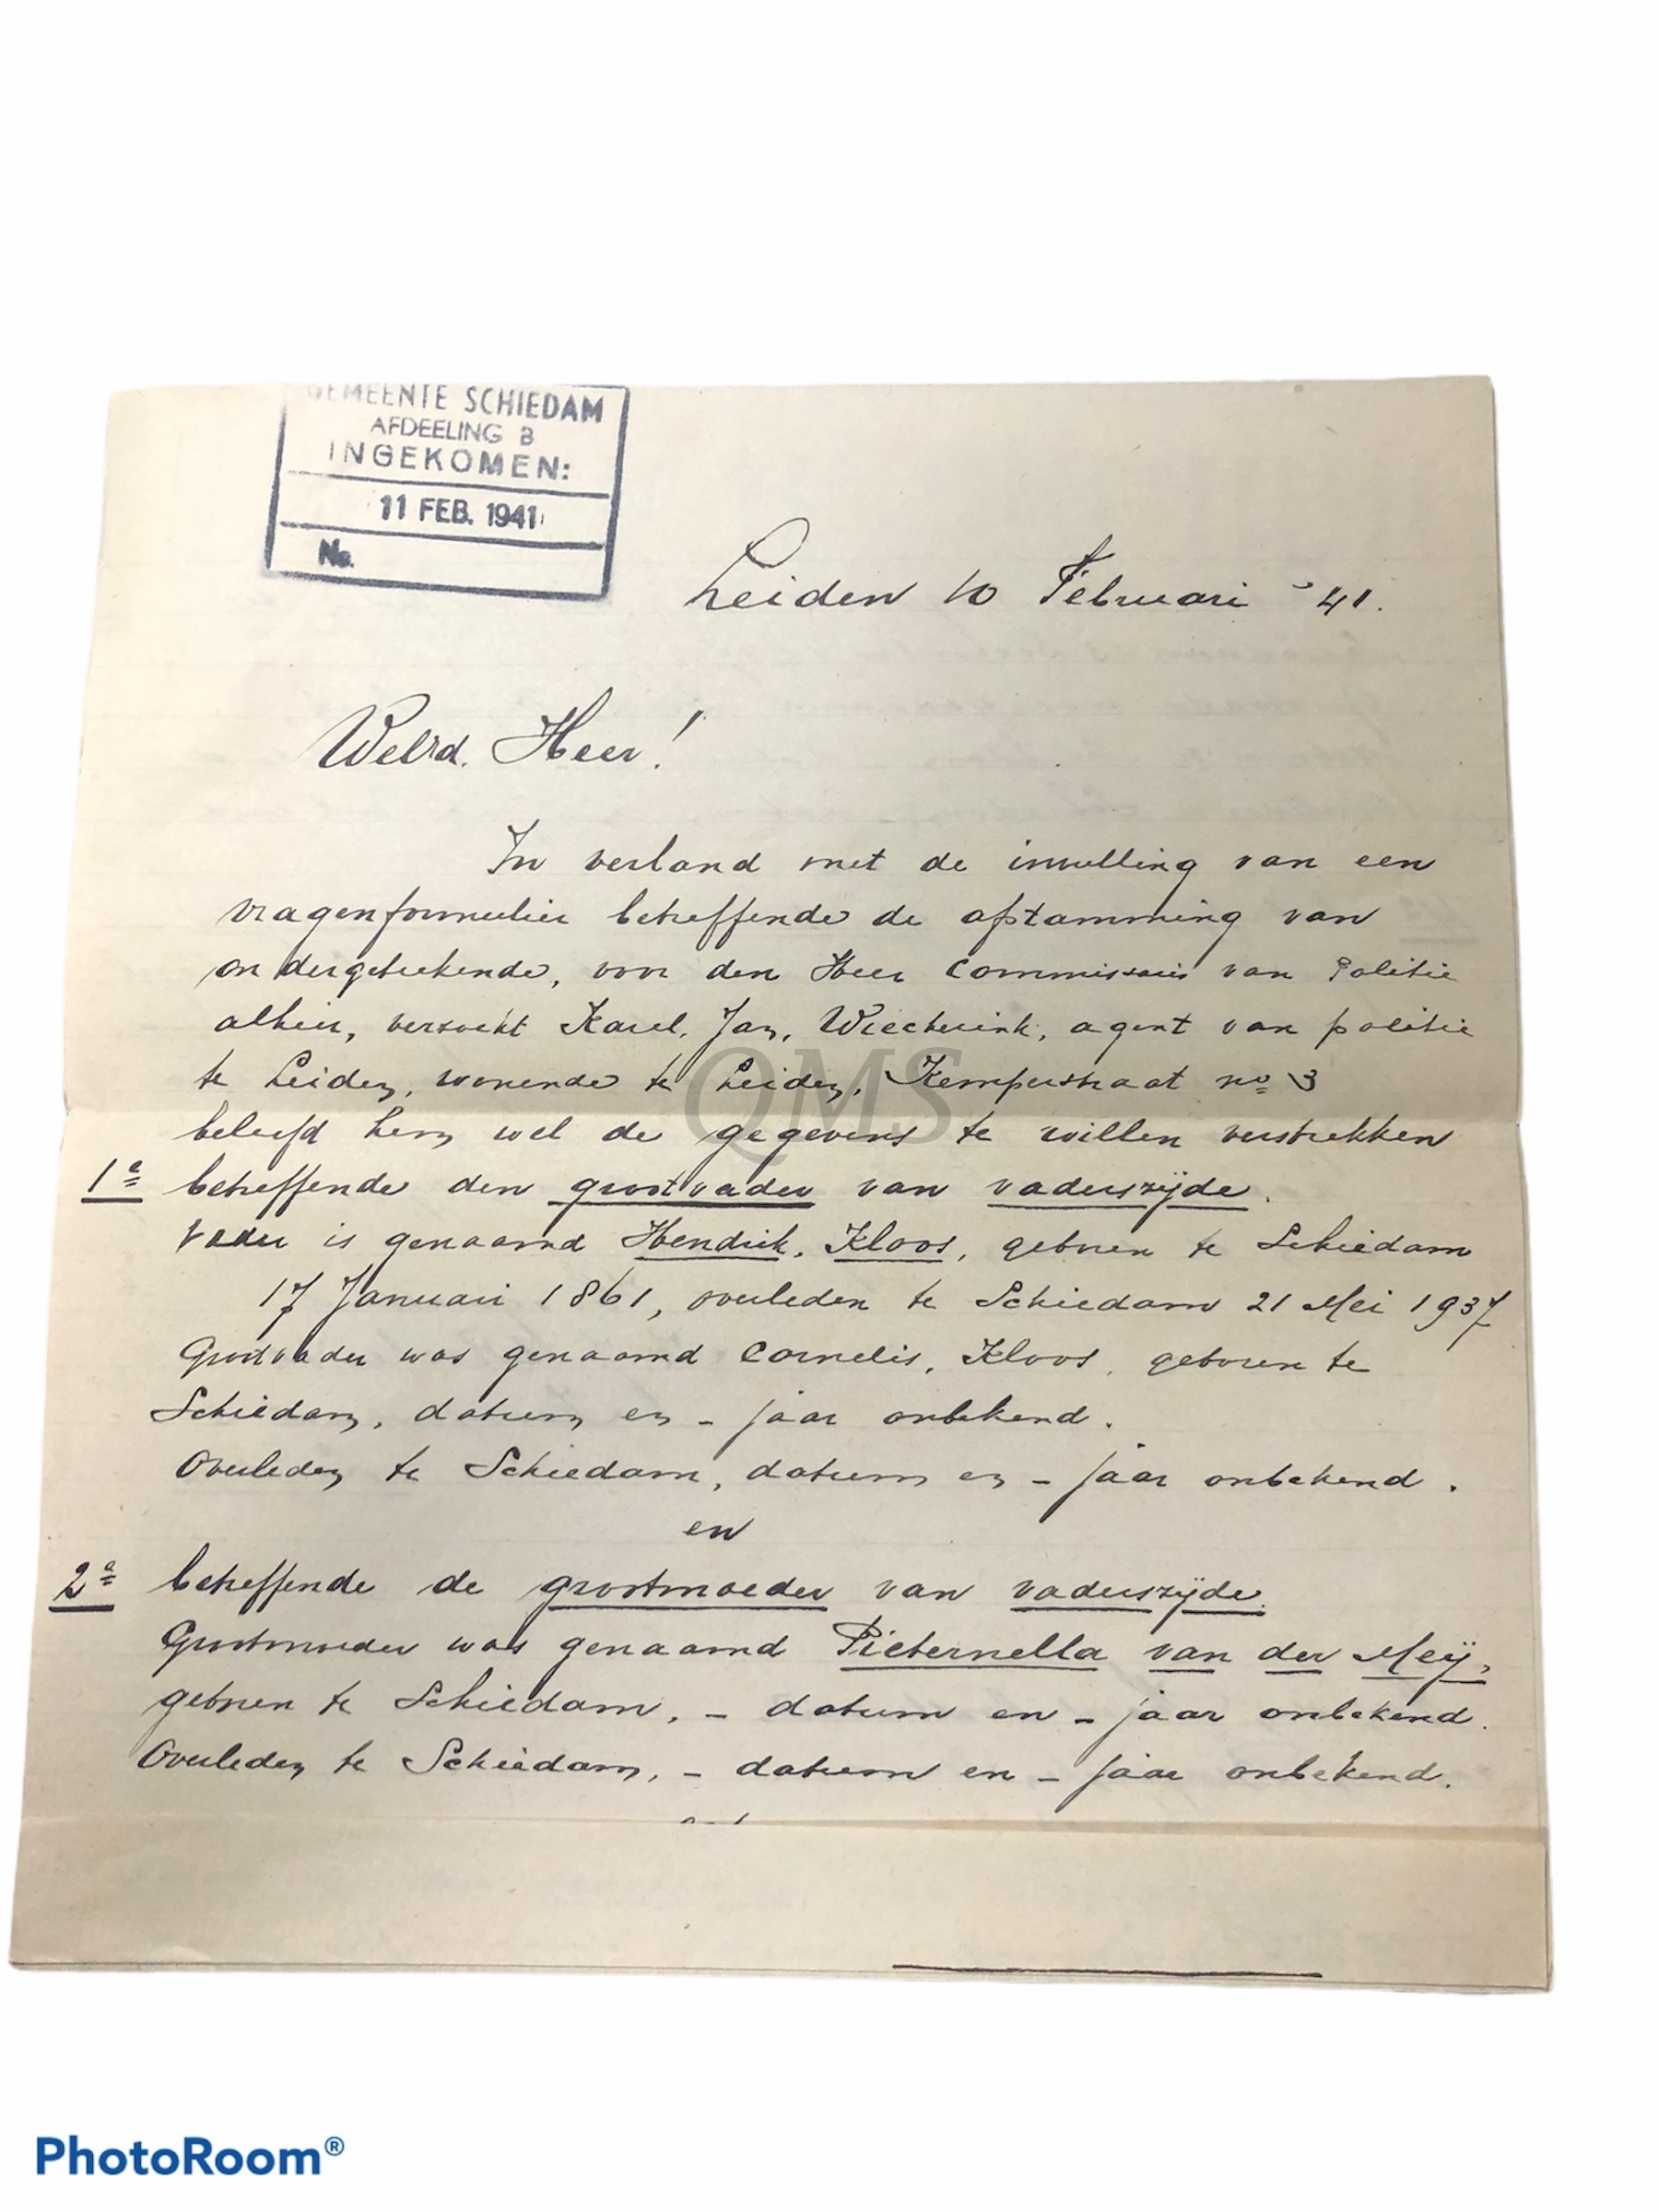 GEMEENTE SCHIEDAM
AFDEELING B
INGEKOMEN:
11 FEB. 1941
No.
Leiden 10 Februari '41.
WelEd. Heer!
In verband met de invulling van een
vragenformulier betreffende de afstamming van
ondergeteekende, voor den Heer Commissaris van Politie
alhier, verzoekt Karel, Jan, Wiecherink, agent van politie
te Leiden, wonende te Leiden, Kemperstraat no 3
beleefd hem wel de gegevens te willen verstrekken
1e betreffende den grootvader van vaderszijde.
Vader is genaamd Hendrik, Kloos, geboren te Schiedam
17 Januari 1861, overleden te Schiedam 21 Mei 1937
Grootvader was genaamd Cornelis, Kloos, geboren te
Schiedam, datum en - jaar onbekend.
Overleden te Schiedam, datum en - jaar onbekend.
en
2e betreffende de grootmoeder van vaderszijde.
Grootmoeder was genaamd Pieternella van der Meij,
geboren te Schiedam, - datum en - jaar onbekend.
Overleden te Schiedam, - datum en - jaar onbekend.
QMS
PhotoRoom®